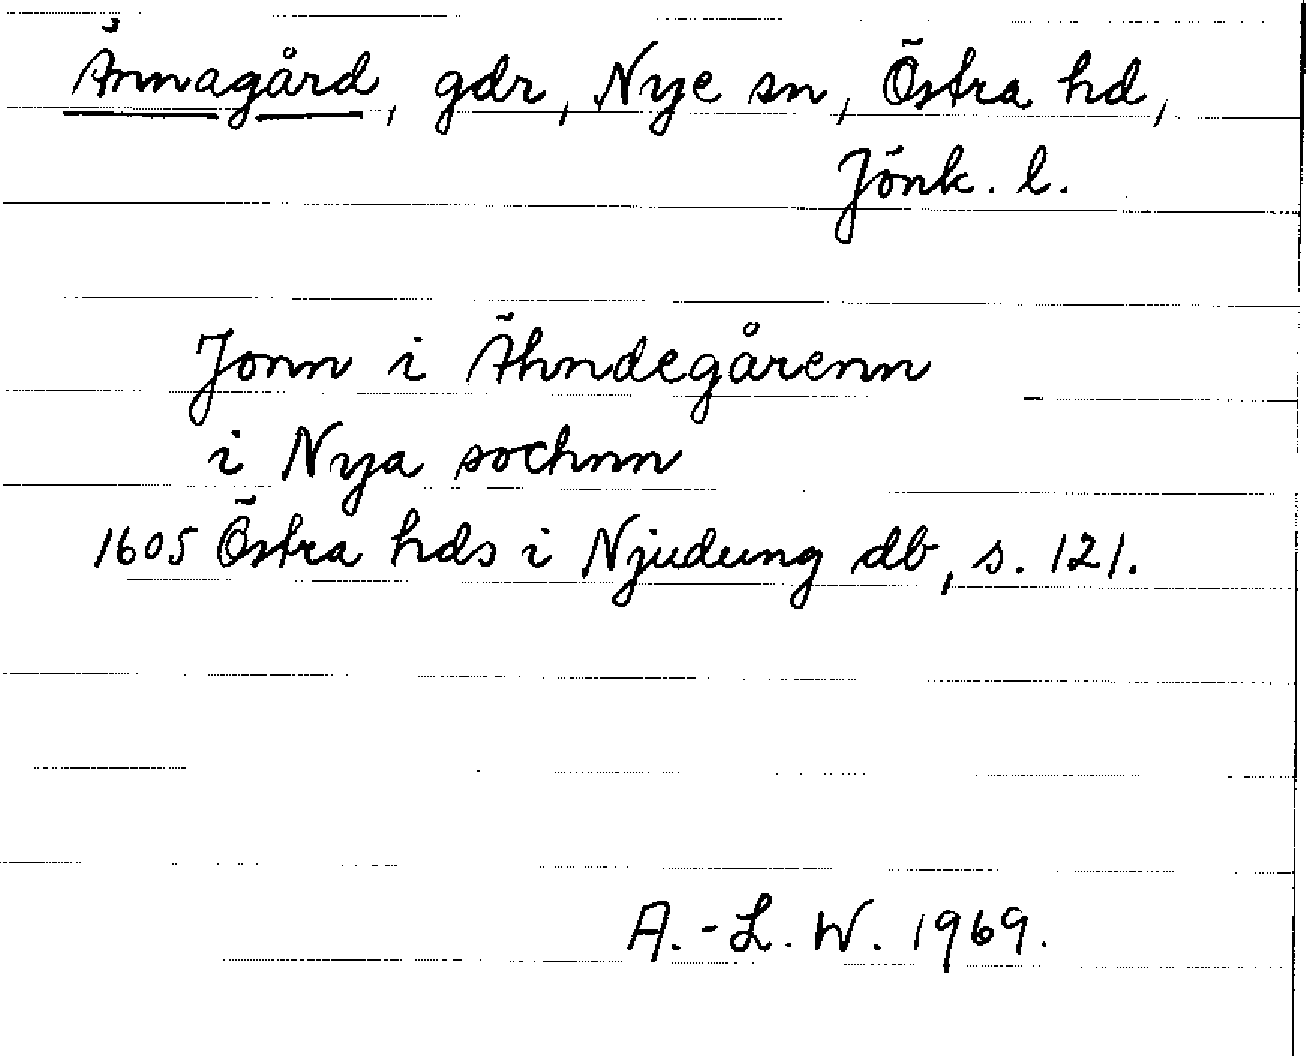 Ännagård, gdr, Nye sn, Östra hd,
Jönk. l.
Jonn i Ähndegårenn
i Nya sochnn
1605 Östra hds i Njudung db, s. 121.
A.-L. W. 1969.